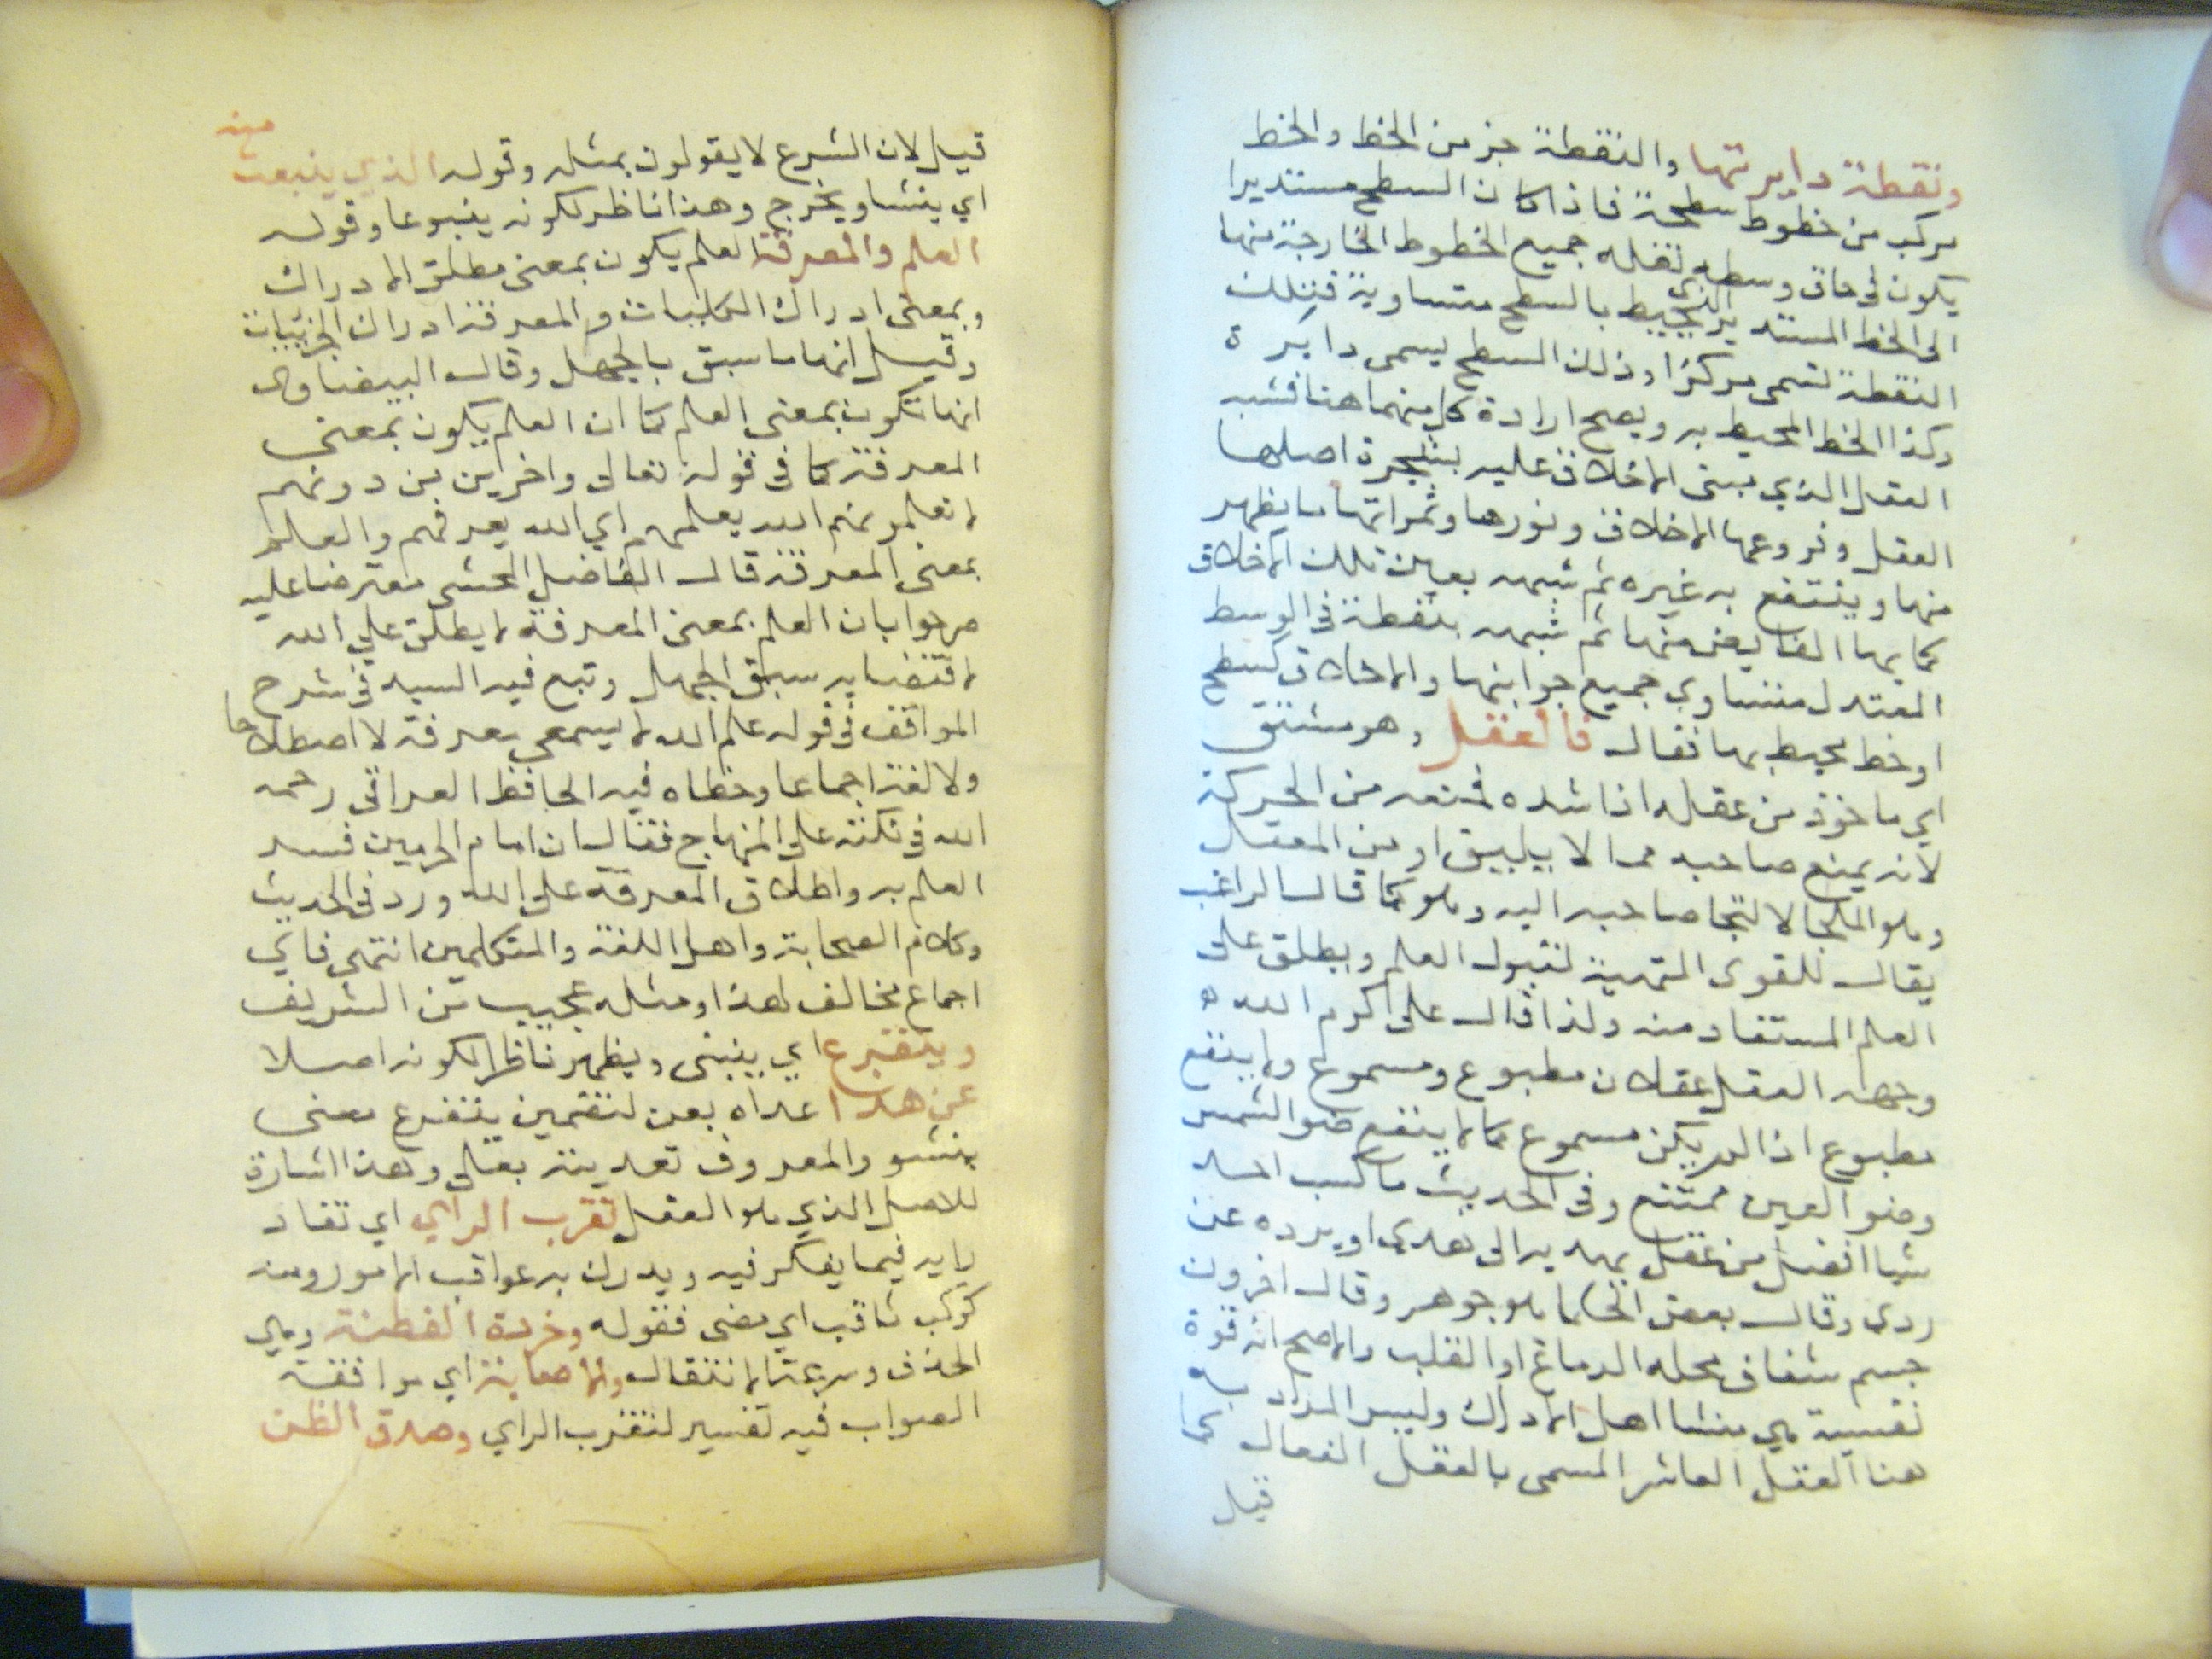 ونقطة دايرتها والنقطة جز من الخط والخط
مركب من خطوط سطحة فاذا كان السطح مستديرا
يكون في حاق وسطه نقطه جميع الخطوط الخارجة منها
الى الخط المستدير المحيط بالسطح متساوية فتلك
النقطة تسمى مركزا وذلك السطح يسمى دايرة
وكذا الخط المحيط به ويصح ارادة كل منهما هنا فشبه
العقل الذي يبنى الاخلاق عليه بشجرة اصلها
العقل وفروعها الاخلاق ونورها وثمراتها ما يظهر
منها وينتفع به غيره ثم شبهه بعين تلك الاخلاق
كمايها الفايض منها ثم شبهه بنقطة في الوسط
المعتدل متساوي جميع جوانبها والاخلاق كسطح
او خط محيط بها فقال فالعقل وهو مشتق
اي ماخوذ من عقله اذا شده فمنعه من الحركة
لانه يمنع صاحبه مما لا يليق او من المعقل
وهو الملجا لالتجا صاحبه اليه وهو كما قال الراغب
يقال للقوى المتهية لقبول العلم ويطلق على
العلم المستفاد منه ولذا قال على اكرم الله
وجهه العقل عقلان مطبوع ومسموع ولا ينفع
مطبوع اذا لم يكن مسموع كما لا ينفع ضو الشمس
وضو العين ممتنع وفي الحديث ما كسب احد
شيا افضل من عقل يهديه الى هدى او يرده عن
ردى وقال بعض الحكما هو جوهر وقال اخرون
جسم شفاف محله الدماغ او القلب والاصح انه قوة
نفسية هي منشا اهل الادراك وليس المراد به
هنا العقل العاشر المسمى بالعقل الفعال كما
قيل
منه
قيل لان الشرع لا يقولون بمثله وقوله الذي ينبعث
اي ينشا ويخرج وهذا ناظر لكونه ينبوعا وقوله
العلم والمعرفة العلم يكون بمعنى مطلق الادراك
وبمعنى ادراك الكليات والمعرفة ادراك الجزئيات
وقيل انها ما سبق بالجهل وقال البيضاوى
انها تكون بمعنى العلم كما ان العلم يكون بمعنى
المعرفة كما في قوله تعالى واخرين من دونهم
لا تعلمونهم الله يعلمهم اي الله يعرفهم والعلم
بمعنى المعرفة قال الفاضل المحشى معترضا عليه
بان العلم بمعنى المعرفة لا يطلق على الله
لاقتضايه سبق الجهل وتبع فيه السيد في شرح
المواقف في قوله علم الله لا يسمى معرفة لا اصطلاحا
ولا لغة اجماعا وخطاه فيه الحافظ العراقي رحمه
الله في نكته على المنهاج فقال ان امام الحرمين فسر
العلم به واطلاق المعرفة على الله ورد في الحديث
وكلام الصحابة واهل اللغة والمتكلمين انتهى فاي
اجماع مخالف لهذا ومثله عجيب من الشريف
ويتفرع اي يبنى ويظهر ناظر لكونه اصلا
عن هذا عداه بعن لتضمين يتفرع معنى
ينشو والمعروف تعديته بعلى وهذا اشارة
للاصل الذي هو العقل ثقوب الراي اي نفاد
رايه فيما يفكر فيه ويدرك به عواقب الامور ومنه
كوكب ثاقب اي مضى فقوله وجودة الفطنة وهي
الحذق وسرعة الانتقال والاصابة اي موافقة
الصواب فيه تفسير لثقوب الراي وصدق الظن